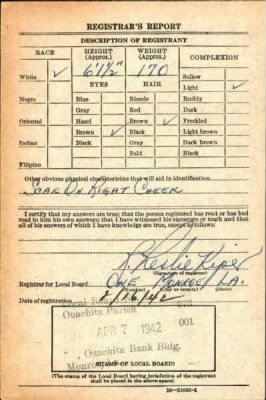 REGISTRAR'S REPORT
DESCRIPTION OF REGISTRANT
RACE HEIGHT (Approx.) WEIGHT (Approx.) COMPLEXION
White ✓ 6'1½" 170 Sallow
EYES HAIR Light ✓
Negro Blue Blonde Ruddy
Gray Red Dark
Oriental Hazel Brown ✓ Freckled
Brown ✓ Black Light brown
Indian Black Gray Dark brown
Bald Black
Filipino
Other obvious physical characteristics that will aid in identification
Scar On Right Cheek
I certify that my answers are true; that the person registered has read or has had
read to him his own answers; that I have witnessed his signature or mark and that
all of his answers of which I have knowledge are true, except as follows:
R. Leslie Kiper
(Signature of registrar)
Registrar for Local Board One Monroe, LA.
(City or county)
Date of registration 2/16/42
Ouachita Parish
APR 7 1942 001
Ouachita Bank Bldg.
Monroe
(STAMP OF LOCAL BOARD)
(The stamp of the Local Board having jurisdiction of the registrant
shall be placed in the above space)